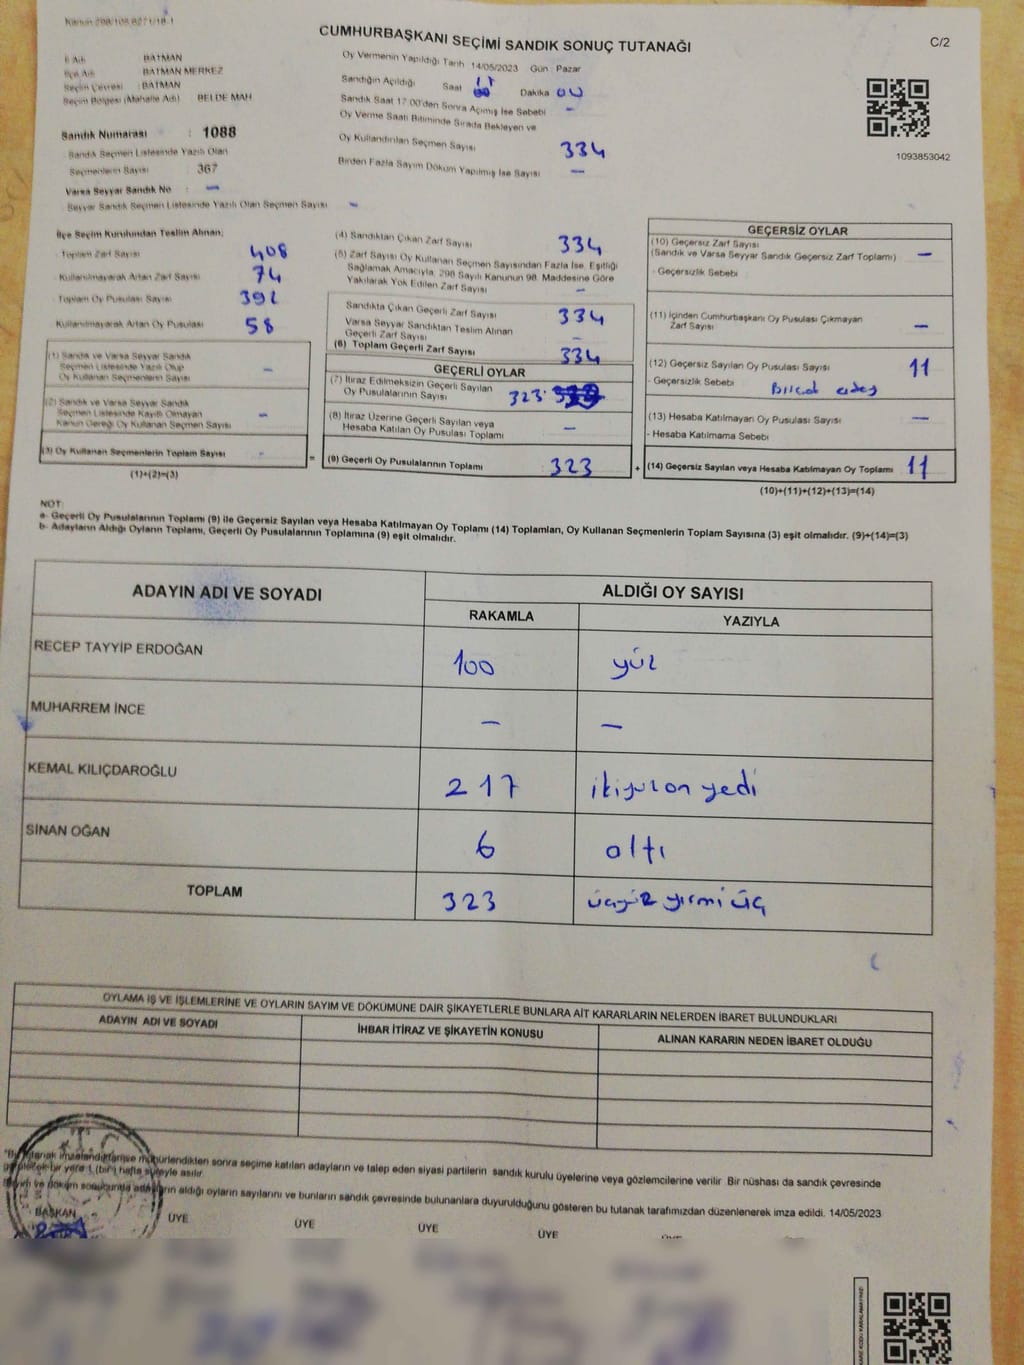 Kanun 298/105 6271/18-1
CUMHURBAŞKANI SEÇİMİ SANDIK SONUÇ TUTANAĞI
C/2
İl Adı BATMAN
İlçe Adı BATMAN MERKEZ
Seçim Çevresi : BATMAN
Seçim Bölgesi (Mahalle Adı) BELDE MAH
Sandık Numarası : 1088
Sandık Seçmen Listesinde Yazılı Olan
Seçmenlerin Sayısı : 367
Varsa Seyyar Sandık No –
Seyyar Sandık Seçmen Listesinde Yazılı Olan Seçmen Sayısı –
Oy Vermenin Yapıldığı Tarih 14/05/2023 Gün : Pazar
Sandığın Açıldığı Saat Dakika 00
Sandık Saat 17:00'den Sonra Açımış İse Sebebi –
Oy Verme Saati Bitiminde Sırada Bekleyen ve
Oy Kullandırılan Seçmen Sayısı 334
Birden Fazla Sayım Döküm Yapılmış İse Sayısı –
1093853042
İlçe Seçim Kurulundan Teslim Alınan;
- Toplam Zarf Sayısı 408
- Kullanılmayarak Artan Zarf Sayısı 74
- Toplam Oy Pusulası Sayısı 392
- Kullanılmayarak Artan Oy Pusulası 58
(1) Sandık ve Varsa Seyyar Sandık
Seçmen Listesinde Yazılı Olup
Oy Kullanan Seçmenlerin Sayısı –
(2) Sandık ve Varsa Seyyar Sandık
Seçmen Listesinde Kayıtlı Olmayan
Kanun Gereği Oy Kullanan Seçmen Sayısı –
(3) Oy Kullanan Seçmenlerin Toplam Sayısı -
(1)+(2)=(3)
=
(4) Sandıktan Çıkan Zarf Sayısı 334
(5) Zarf Sayısı Oy Kullanan Seçmen Sayısından Fazla İse, Eşitliği
Sağlamak Amacıyla, 298 Sayılı Kanunun 98. Maddesine Göre
Yakılarak Yok Edilen Zarf Sayısı –
Sandıkta Çıkan Geçerli Zarf Sayısı 334
Varsa Seyyar Sandıktan Teslim Alınan
Geçerli Zarf Sayısı –
(6) Toplam Geçerli Zarf Sayısı 334
GEÇERLİ OYLAR
(7) İtiraz Edilmeksizin Geçerli Sayılan
Oy Pusulalarının Sayısı 323
(8) İtiraz Üzerine Geçerli Sayılan veya
Hesaba Katılan Oy Pusulası Toplamı –
(9) Geçerli Oy Pusulalarının Toplamı 323
+
GEÇERSİZ OYLAR
(10) Geçersiz Zarf Sayısı
(Sandık ve Varsa Seyyar Sandık Geçersiz Zarf Toplamı) –
- Geçersizlik Sebebi
(11) İçinden Cumhurbaşkanı Oy Pusulası Çıkmayan
Zarf Sayısı –
(12) Geçersiz Sayılan Oy Pusulası Sayısı 11
- Geçersizlik Sebebi
(13) Hesaba Katılmayan Oy Pusulası Sayısı –
- Hesaba Katılmama Sebebi
(14) Geçersiz Sayılan veya Hesaba Katılmayan Oy Toplamı 11
(10)+(11)+(12)+(13)=(14)
NOT:
a- Geçerli Oy Pusulalarının Toplamı (9) ile Geçersiz Sayılan veya Hesaba Katılmayan Oy Toplamı (14) Toplamları, Oy Kullanan Seçmenlerin Toplam Sayısına (3) eşit olmalıdır. (9)+(14)=(3)
b- Adayların Aldığı Oyların Toplamı, Geçerli Oy Pusulalarının Toplamına (9) eşit olmalıdır.
ADAYIN ADI VE SOYADI ALDIĞI OY SAYISI
RAKAMLA YAZIYLA
RECEP TAYYİP ERDOĞAN 100 yüz
MUHARREM İNCE – –
KEMAL KILIÇDAROĞLU 217 ikiyüz on yedi
SİNAN OĞAN 6 altı
TOPLAM 323 üçyüz yirmi üç
OYLAMA İŞ VE İŞLEMLERİNE VE OYLARIN SAYIM VE DÖKÜMÜNE DAİR ŞİKAYETLERLE BUNLARA AİT KARARLARIN NELERDEN İBARET BULUNDUKLARI
ADAYIN ADI VE SOYADI İHBAR İTİRAZ VE ŞİKAYETİN KONUSU ALINAN KARARIN NEDEN İBARET OLDUĞU
T.C.
"Bu tutanak imzalandıktan ve mühürlendikten sonra seçime katılan adayların ve talep eden siyasi partilerin sandık kurulu üyelerine veya gözlemcilerine verilir. Bir nüshası da sandık çevresinde
görülecek bir yere 1 (bir) hafta süreyle asılır.
Sayım ve döküm sonucunda adayların aldığı oyların sayılarını ve bunların sandık çevresinde bulunanlara duyurulduğunu gösteren bu tutanak tarafımızdan düzenlenerek imza edildi. 14/05/2023
BAŞKAN ÜYE ÜYE ÜYE ÜYE